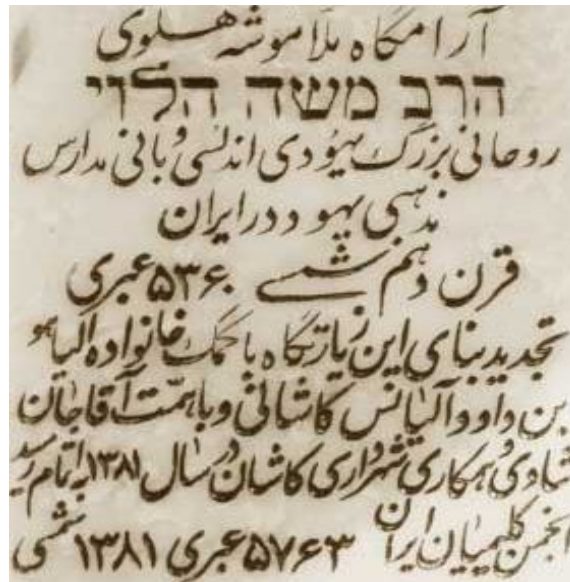 آرامگاه ملاموشه هلوی
הרב משה הלוי
روحانی بزرگ یهودی اندلسی و بانی مدارس
مذهبی یهود در ایران
قرن دهم شمسی ۵۳۶۰ عبری
تجدید بنای این زیارتگاه با کمک خانواده الیاهو
بن داوود آلیانس کاشانی و با همت آقاجان
شادی و همکاری شهرداری کاشان در سال ۱۳۸۱ به اتمام رسید
انجمن کلیمیان ایران ۵۷۶۳ عبری ۱۳۸۱ شمسی